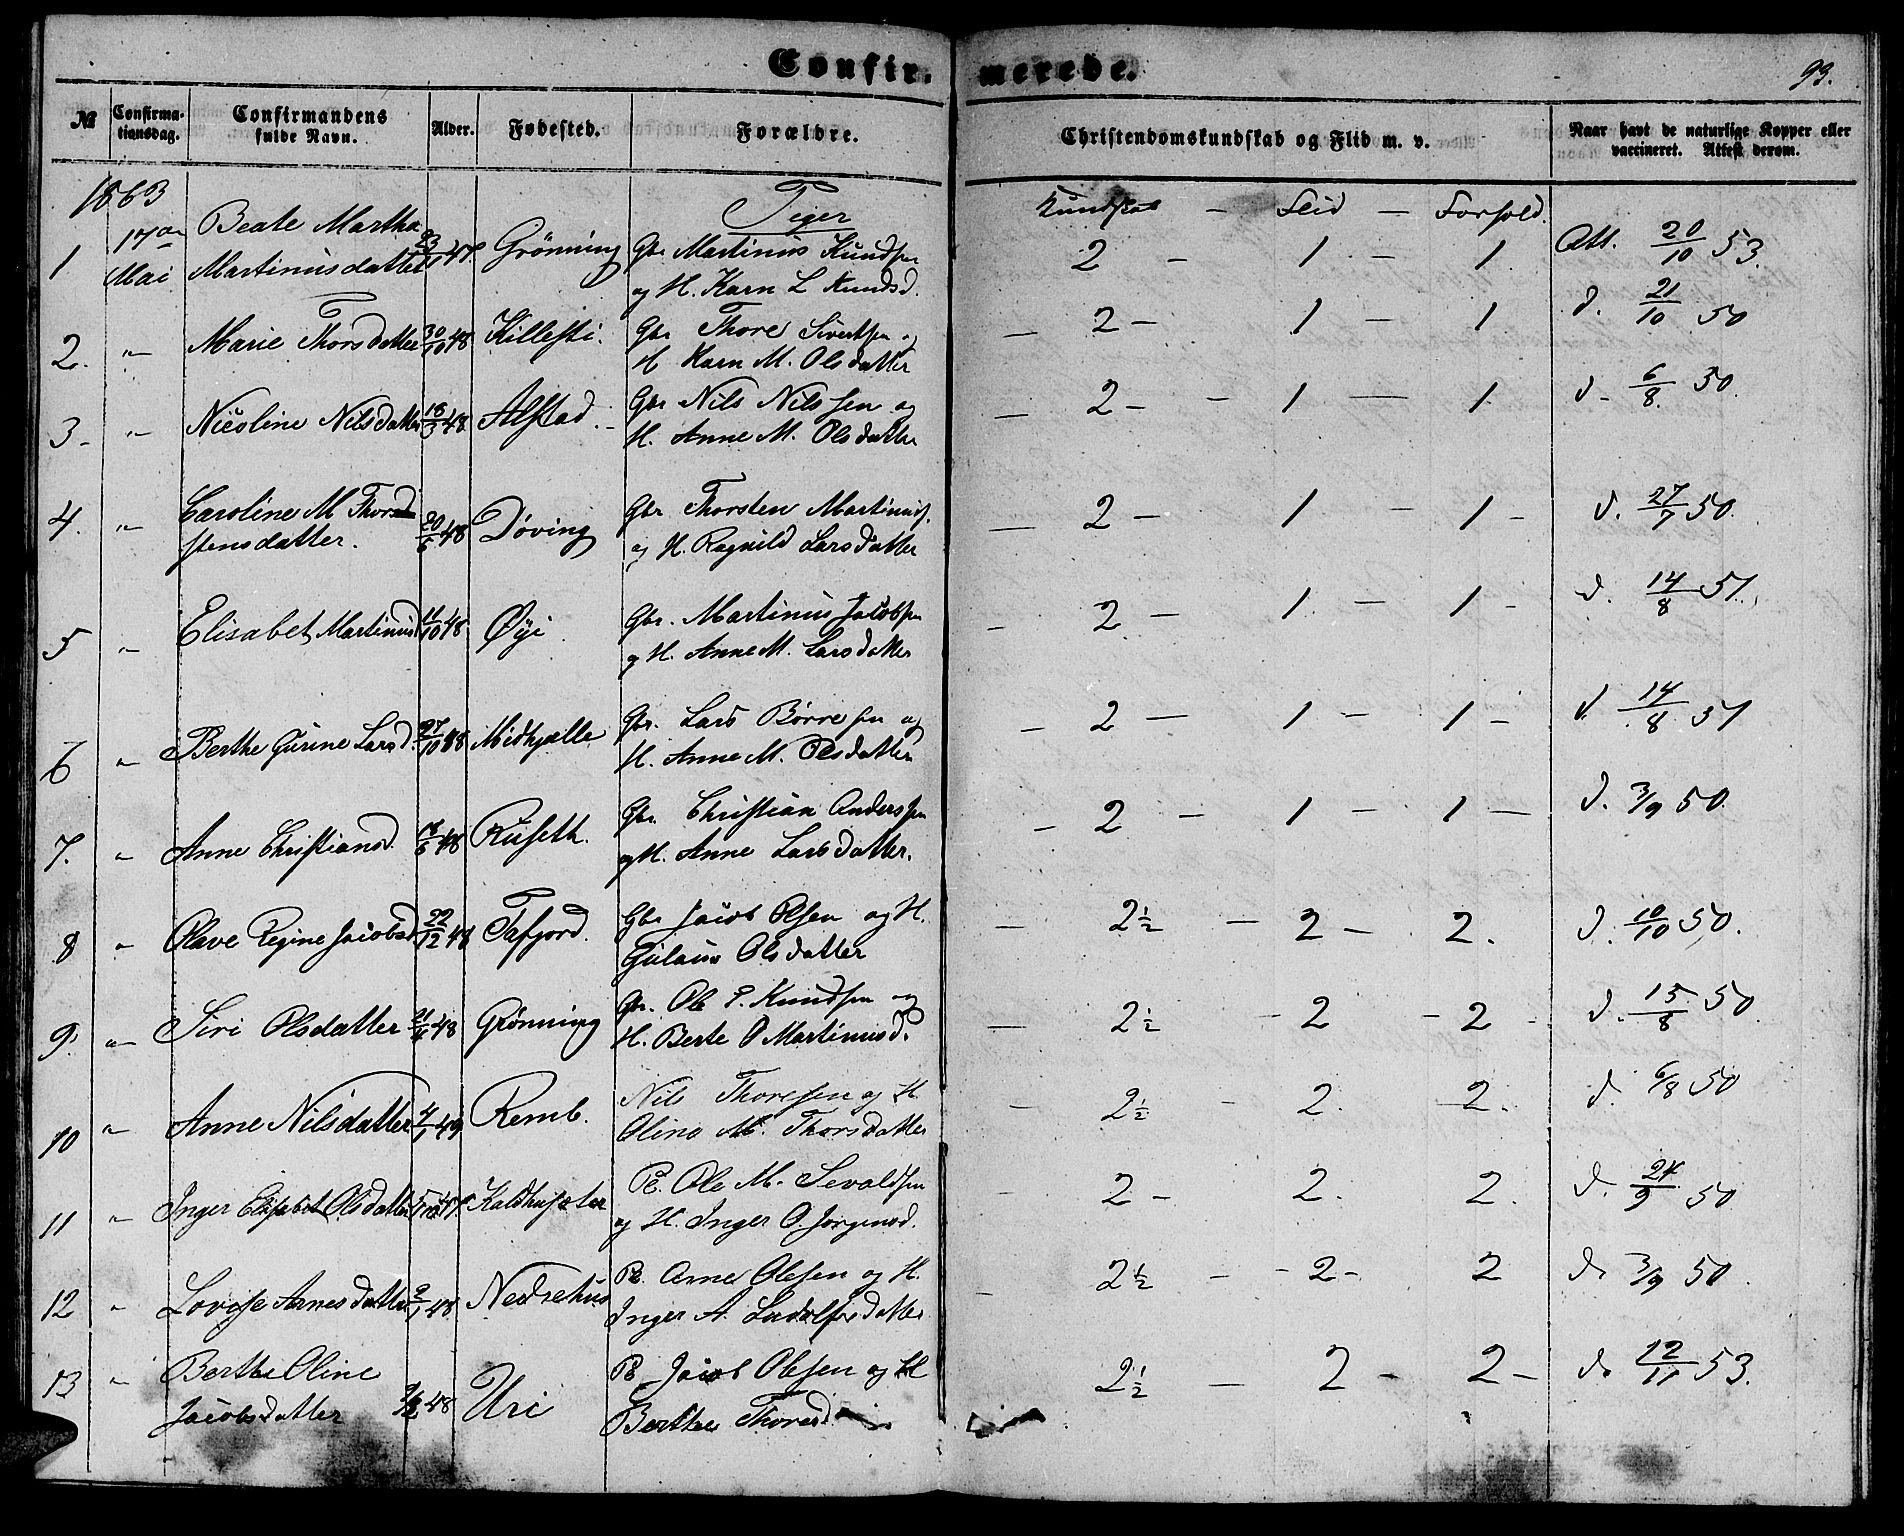 Confir- merede. 93.
№ Confirma-tiansdag. Confirmandens fulde Navn. Alder. Fødested. Forældre. Christendomskundskab og Flid m. v. Naar havt de naturlige Kopper eller vaccineret. Attest derom.
1863
Piger Kundskab – Flid – Forhold.
1 17de Mai Beate Martha Martinusdatter 47. Grønning Gbr. Martinus Knudsen og H. Karn L Knudsd. 2 – 1 – 1. Att. 20/10 53.
2. " Marie Thorsdatter 30/10 48 Killesti. Gbr Thore Sivertsen og H Karn M. Olsdatter – 2 – 1 – 1 d. 21/10 50
3 - " Nicoline Nilsdatter 18/3 48 Alstad. Gbr Nils Nilssen og H. Anne M. Olsdatter – 2 – 1 – 1 d. 6/8. 50.
4. " Caroline M Thorstensdatter. 20/6 48 Døving Gbr Thorsten Martinus. og H. Ragnild Larsdatter – 2 – 1 – 1 – d. 27/7 50.
5 " Elisabet Martinusd 11/10 48 Øyi Gbr. Martinus Jacobsen og H. Anne M. Larsdatter – 2 – 1. – 1 – d. 14/8 51.
6 " Berthe Gurine Larsd. 27/10 48 Midhjælle Gbr. Lars Børresen og H. Anne M. Olsdatter – 2 – 1 – 1 – d. 14/8 51
7. " Anne Christiansd. 48 Ruseth. Gbr. Christian Anderssen og H. Anne Larsdatter. – 2 – 1 – 1 – d. 3/9 50.
8 " Olave Regine Jacobsd 22/12 48 Tafjord. Gbr Jacob Olsen og H. Gulaug Olsdatter – 2½ – 2 – 2. d. 10/10 50.
9. " Siri Olsdatter 48 Grønning Gbr. Ole P. Knudsen og H. Berte O Martinusd. – 2½ – 2 – 2 – d. 15/8 50.
10 " Anne Nilsdatter 4/1 49 Remb. Nils Thoresen og H Oline M. Thorsdatter – 2½ – 2. – 2. d. 6/8 50
11 " Inger Elisabet Olsdatter Kaldhusseter Pl. Ole M. Sevaldsen og H. Inger O. Jørgensd. – 2 – 2. 2. d. 24/9 50.
12 " Lovise Arnesdatter 48 Nedrehus Pl. Arne Olesen og H. Inger A. Ludolfsdatter – 2½ – 2 – 2 d. 3/9 50.
13 " Berthe Oline Jacobsdatter 48 Uri Pl Jacob Olesen og H Berthe Thoresd. 2½ – 2 – 2 – d. 12/11 53.